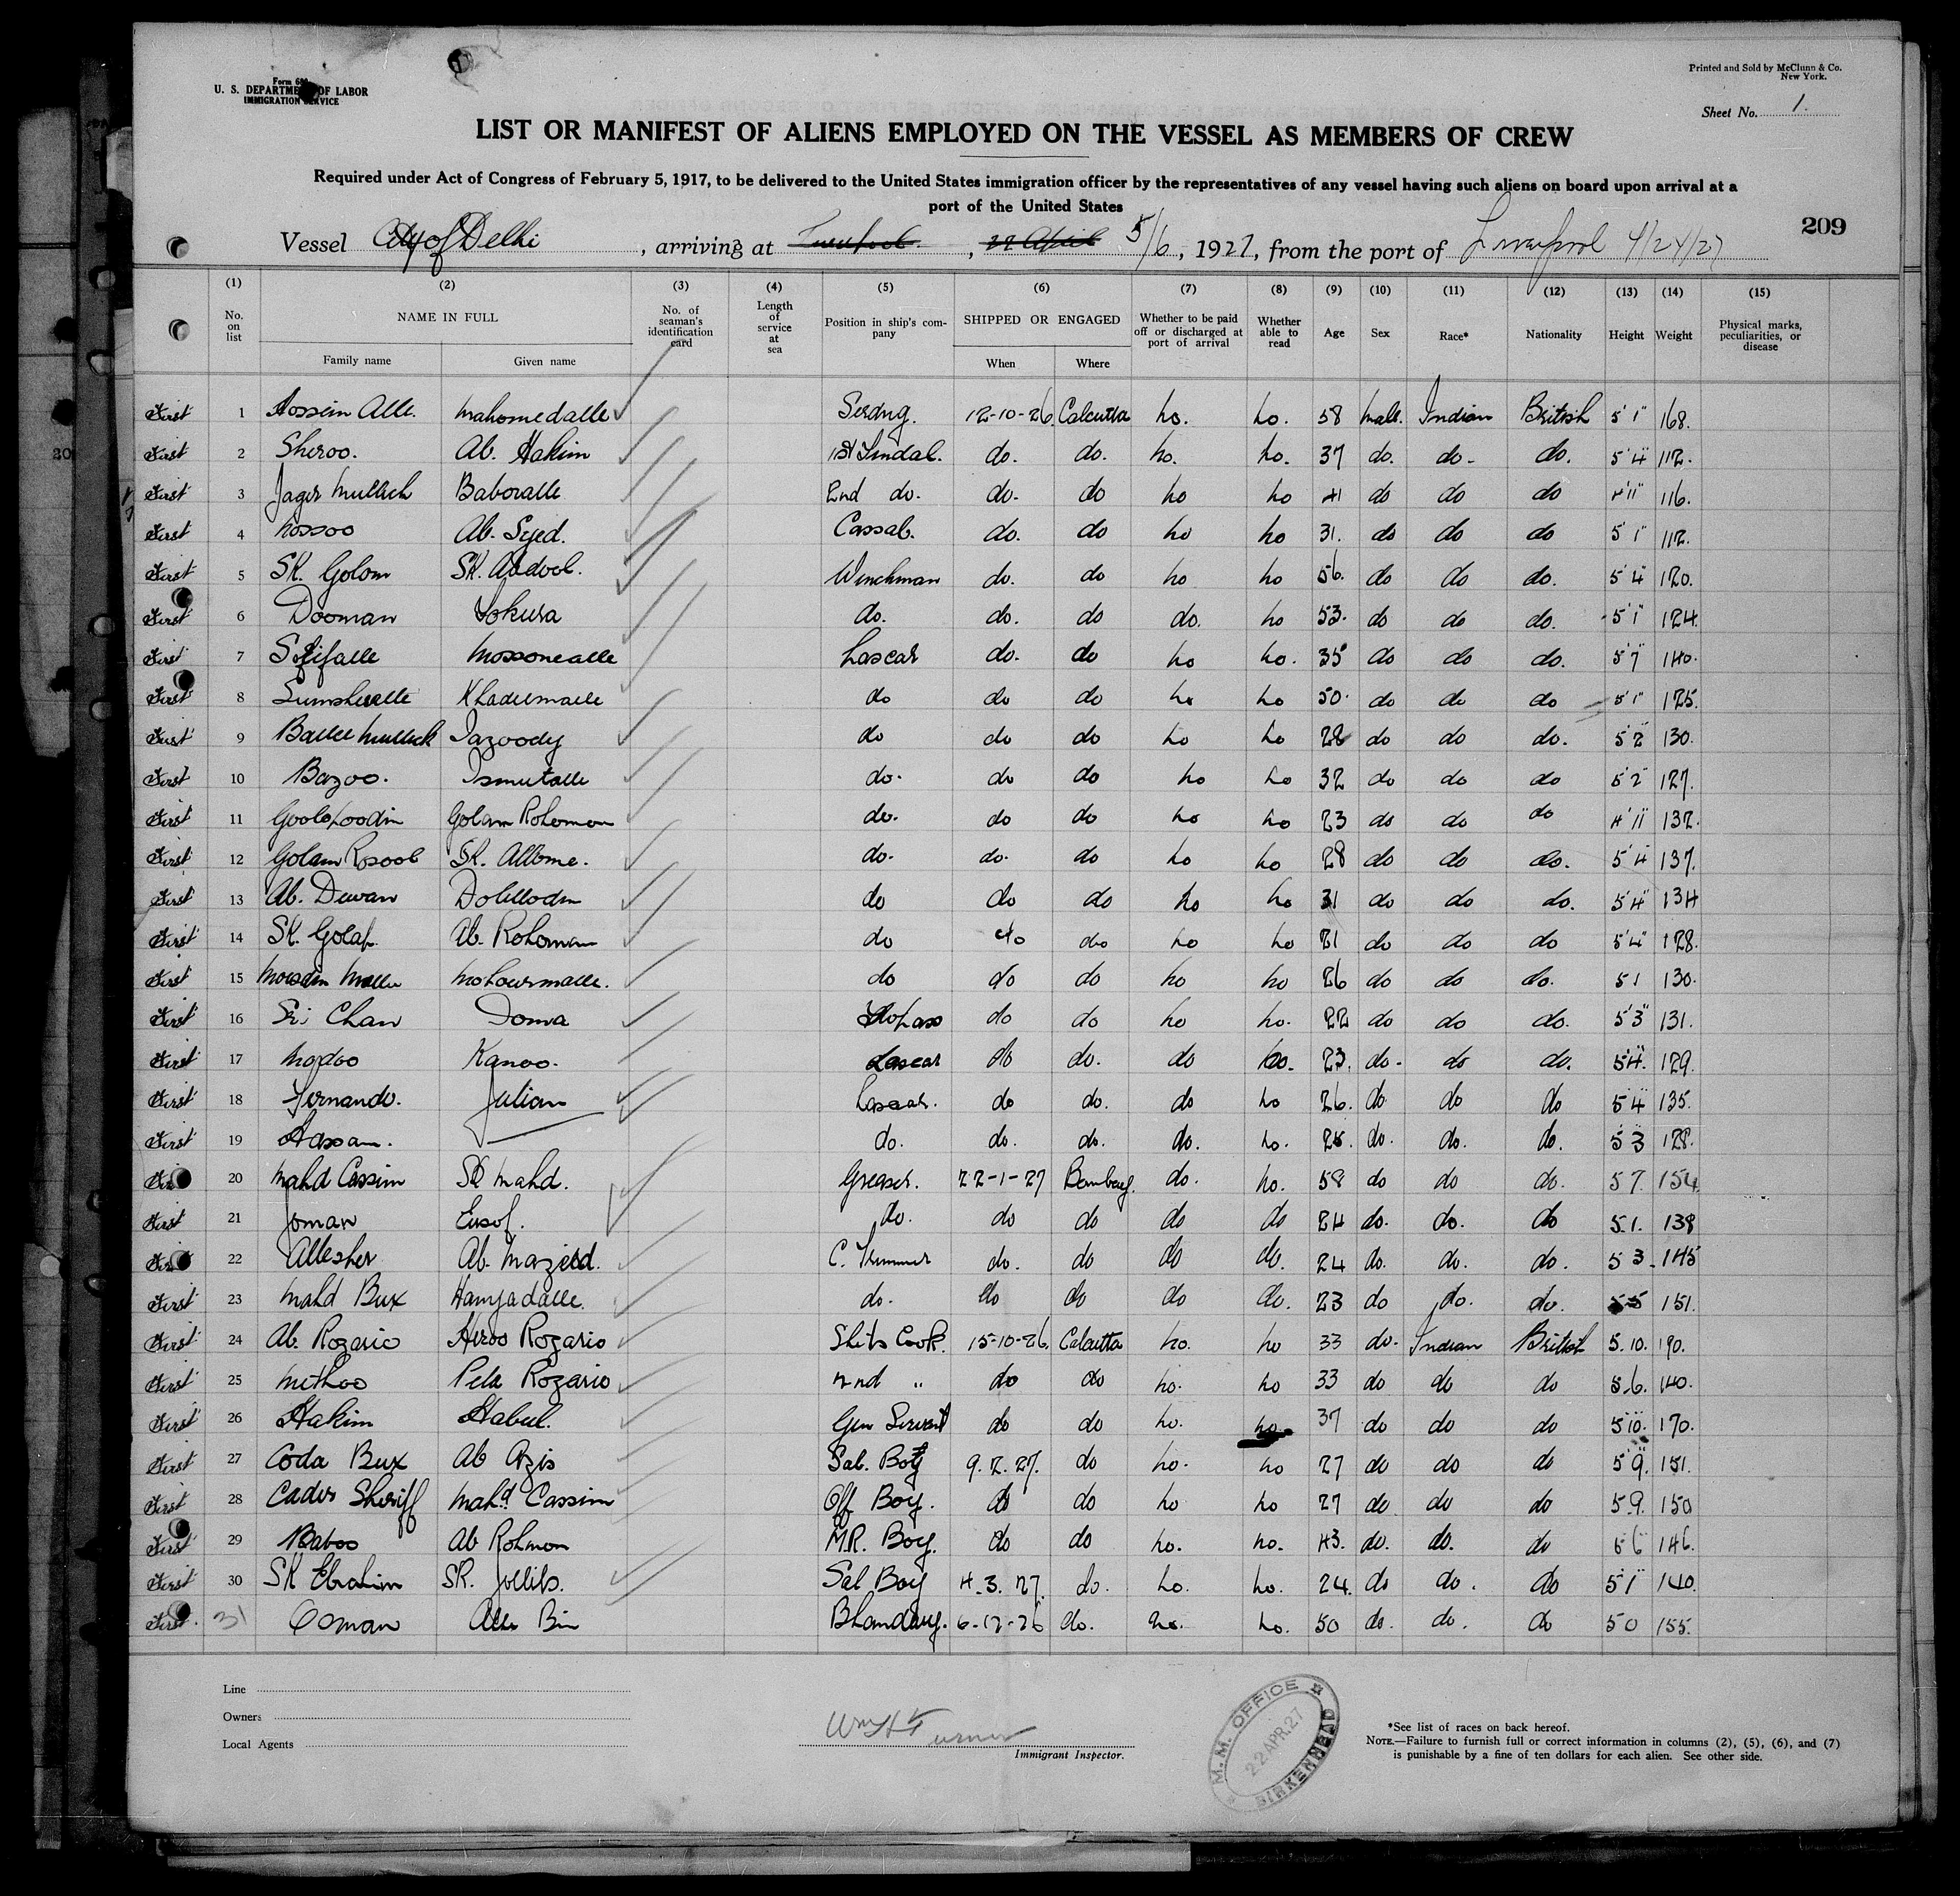 Form 680
U. S. DEPARTMENT OF LABOR
IMMIGRATION SERVICE
Printed and Sold by McClunn & Co.
New York.
Sheet No. 1.
LIST OR MANIFEST OF ALIENS EMPLOYED ON THE VESSEL AS MEMBERS OF CREW
Required under Act of Congress of February 5, 1917, to be delivered to the United States immigration officer by the representatives of any vessel having such aliens on board upon arrival at a
port of the United States
209
Vessel City of Delhi, arriving at Liverpool, 22 April 5/6, 1927, from the port of Liverpool 4/24/27
(1) (2) (3) (4) (5) (6) (7) (8) (9) (10) (11) (12) (13) (14) (15)
No. on list NAME IN FULL Family name Given name No. of seaman's identification card Length of service at sea Position in ship's company SHIPPED OR ENGAGED When Where Whether to be paid off or discharged at port of arrival Whether able to read Age Sex Race* Nationality Height Weight Physical marks, peculiarities, or disease
First 1 Hossein Alle. Mahomedalle Serang. 12-10-26 Calcutta No. No. 58 Male. Indian British 5'1" 168.
First 2 Sheroo. Ab. Hakim 1st Tindal. do. do. No. No. 37 do. do- do. 5'4" 112.
First 3 Jager Mullick Baboralle 2nd do. do. do No No 41 do do do 4'11" 116.
First 4 Nossoo Ab. Syed. Cassab. do. do No No 31. do do do 5'1" 112.
First 5 SK. Golom SK. Abdool. Winchman do. do No No 56. do do do. 5'4" 120.
First 6 Dooman Sokura do. do. do do. No 53. do do do. 5'1" 124.
First 7 Mossonealle Lascar do. do No No. 35 do do do. 5'7" 140.
First 8 Khadermalle do do do No No 50. do do do 5'1" 125.
First 9 Ballee Mullick Jazoody do do do No No 28 do do do. 5'2 130.
First 10 Bazoo. Ismutalle do. do do No No 32 do do do 5'2" 127.
First 11 Golam Rohoman do. do do No No 23 do do do 4'11 132.
First 12 Golam Rosool SK. Allome. do. do. do No No 28 do do do. 5'4" 137.
First 13 Ab. Dewan Dolillodin do do do No No 31 do do do. 5'4" 134
First 14 SK. Golap. Ab. Rohoman do do do No No 21 do do do 5'4" 128.
First 15 Mohowrmalle. do do do No No 26 do do do. 51 130.
First 16 Sri Chan Doma Topass do do No No. 22 do do do. 5'3" 131.
First 17 Modoo Kanoo. Lascar do do. do No. 23. do- do do. 5'4". 129.
First 18 Fernando. Julian Lascar. do do. do No 26. do do do 54 135.
First 19 Hassan. do. do. do. do. No. 25. do. do. do. 53 128.
First 20 Mahd Cassim SK Mahd. Greaser. 22-1-27 Bombay. do. No. 58 do do do. 57. 154.
First 21 Joman Eusof. do. do do do do 24 do. do. do 5.1. 138
First 22 Allesher Ab. Mazeed. C. Trimmer do. do do do. 24 do. do. do. 53. 145
First 23 Mahd Bux Hamjadalle. do. do do do do. 23 do do. do. 55 151.
First 24 Ab. Rozario Heroo Rozario Ships Cook. 15-10-26. Calcutta No. No 33 do. Indian British 5.10. 190.
First 25 Methoo Peta Rozario 2nd " do do No. No 33 do do do 5.6. 140.
First 26 Hakim Habul. Gen Servant do do No. No. 37 do do do 510. 170.
First 27 Coda Bux Ab Azis Sal. Boy 9. 2. 27. do No. No 27 do do do 5'9". 151.
First 28 Cader Sheriff Mahd Cassim Off Boy. do do No No 27 do do do 5.9. 150
First 29 Baboo Ab Rohmon M.R. Boy. do do No. No. 43. do. do. do 56 146.
First 30 SK Ebrahim SK. Jollils. Sal Boy 4. 3. 27. do. No. No. 24. do do. do 5'1" 140.
First. 31 Osman Alle Bin Bhandary. 6-12-26 do. No. No. 50 do. do. do 50 155.
Line
Owners
Local Agents
Wm H Turner
Immigrant Inspector.
M.M. OFFICE
22 APR.27
BIRKENHEAD
*See list of races on back hereof.
NOTE.—Failure to furnish full or correct information in columns (2), (5), (6), and (7)
is punishable by a fine of ten dollars for each alien. See other side.